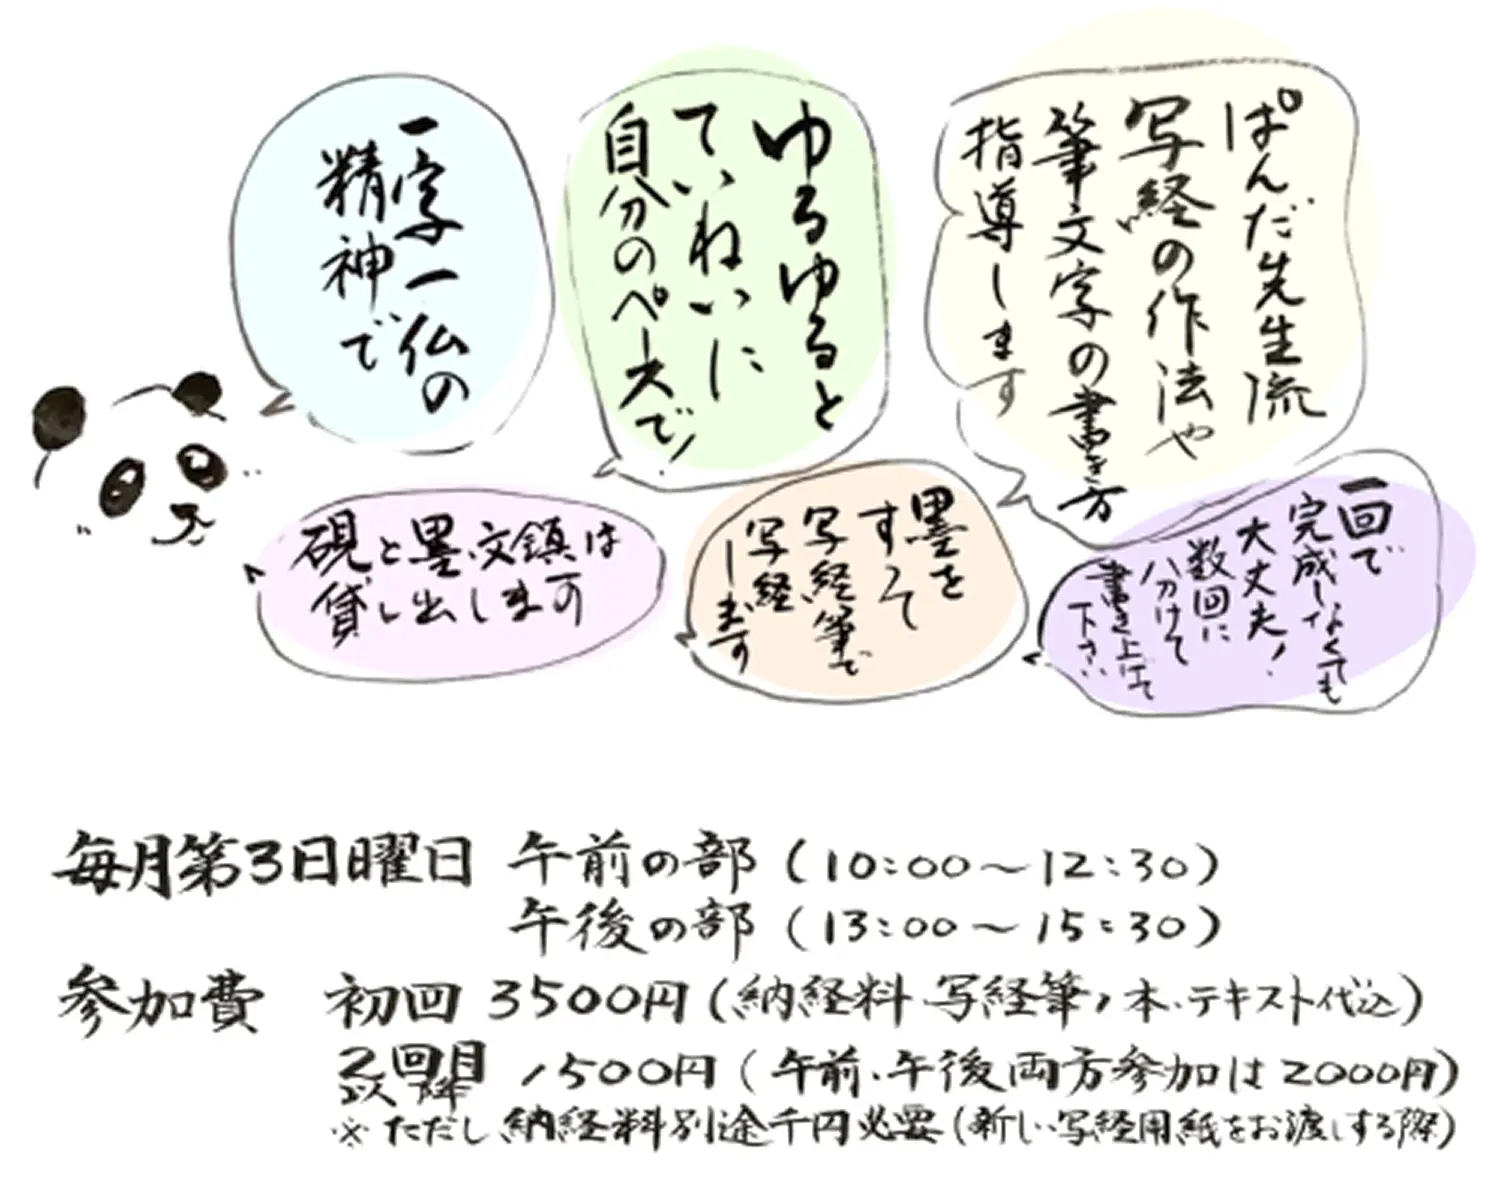 ぱんだ先生流
写経の作法や
筆文字の書き方
指導します
ゆるゆると
ていねいに
自分のペースで!
一字一仏の
精神で
一回で
完成しなくても
大丈夫!
数回に
分けて
書き上げて
下さい
墨を
すって
写経筆で
写経
します
硯と墨、文鎮は
貸し出します
毎月第3日曜日 午前の部(10:00~12:30)
午後の部(13:00~15:30)
参加費 初回 3500円(納経料、写経筆1本、テキスト代込)
2回目以降 1500円(午前、午後両方参加は2000円)
※ただし納経料別途千円必要(新しい写経用紙をお渡しする際)